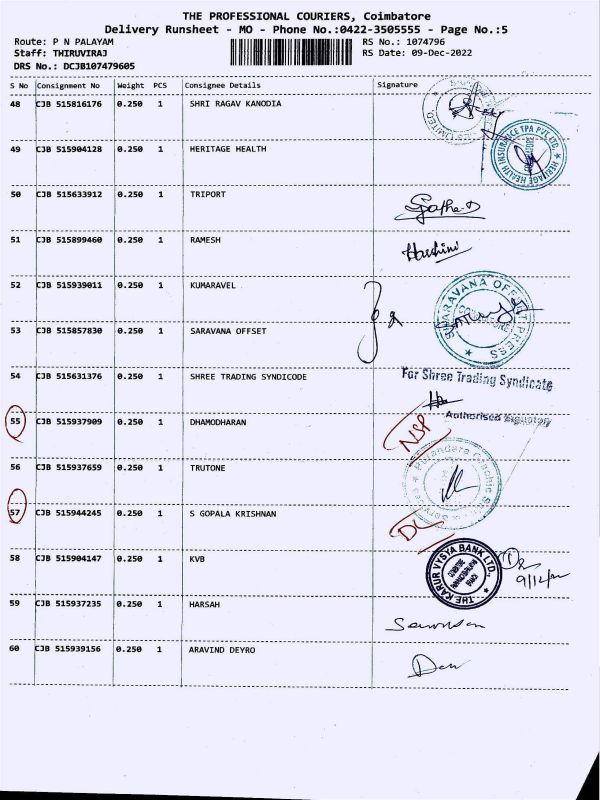 THE PROFESSIONAL COURIERS, Coimbatore
Delivery Runsheet - MO - Phone No.:0422-3505555 - Page No.:5
Route: P N PALAYAM RS No.: 1074796
Staff: THIRUVIRAJ RS Date: 09-Dec-2022
DRS No.: DCJB107479605
S No Consignment No Weight PCS Consignee Details Signature
48 CJB 515816176 0.250 1 SHRI RAGAV KANODIA
LIMITED
49 CJB 515904128 0.250 1 HERITAGE HEALTH
HERITAGE HEALTH INSURANCE TPA PVT. LTD.
50 CJB 515633912 0.250 1 TRIPORT
51 CJB 515899460 0.250 1 RAMESH
52 CJB 515939011 0.250 1 KUMARAVEL
53 CJB 515857830 0.250 1 SARAVANA OFFSET
SARAVANA OFFSET PRESS
54 CJB 515631376 0.250 1 SHREE TRADING SYNDICODE
For Shree Trading Syndicate
Authorised Signatory
55 CJB 515937909 0.250 1 DHAMODHARAN NSP
56 CJB 515937659 0.250 1 TRUTONE
57 CJB 515944245 0.250 1 S GOPALA KRISHNAN DL
58 CJB 515904147 0.250 1 KVB
THE KARUR VYSYA BANK LTD.
9/12/22
59 CJB 515937235 0.250 1 HARSAH
60 CJB 515939156 0.250 1 ARAVIND DEYRO